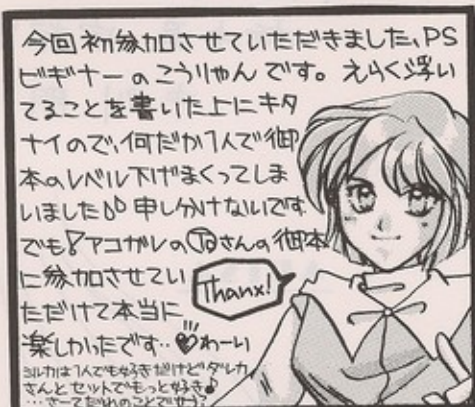 今回初参加させていただきました、PS
ビギナーのこうりゃんです。えらく浮い
てることを書いた上にキタ
ナイので、何だか1人で御
本のレベル下げまくってしま
いました 申し分けないです
でも!アコガレの さんの御本
に参加させてい
ただけて本当に
楽しかったです‥♥わーい
ミルカは1人でも好きだけどダレカ
さんとセットでもっと好き♪
…さーてだれのことでせう?
Thanx!